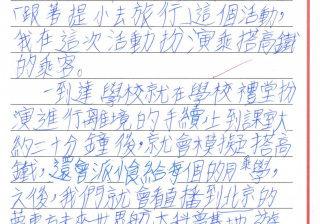 「跟著提小去旅行」這個活動,
我在這次活動扮演乘搭高鐵
的乘客。
一到達學校就在學校禮堂扮
演進行離境的手續,上到課室大
約二十分鐘後,就會模擬搭高
鐵,還會派食給每個的同學,
之後,我們就會直播到北京的